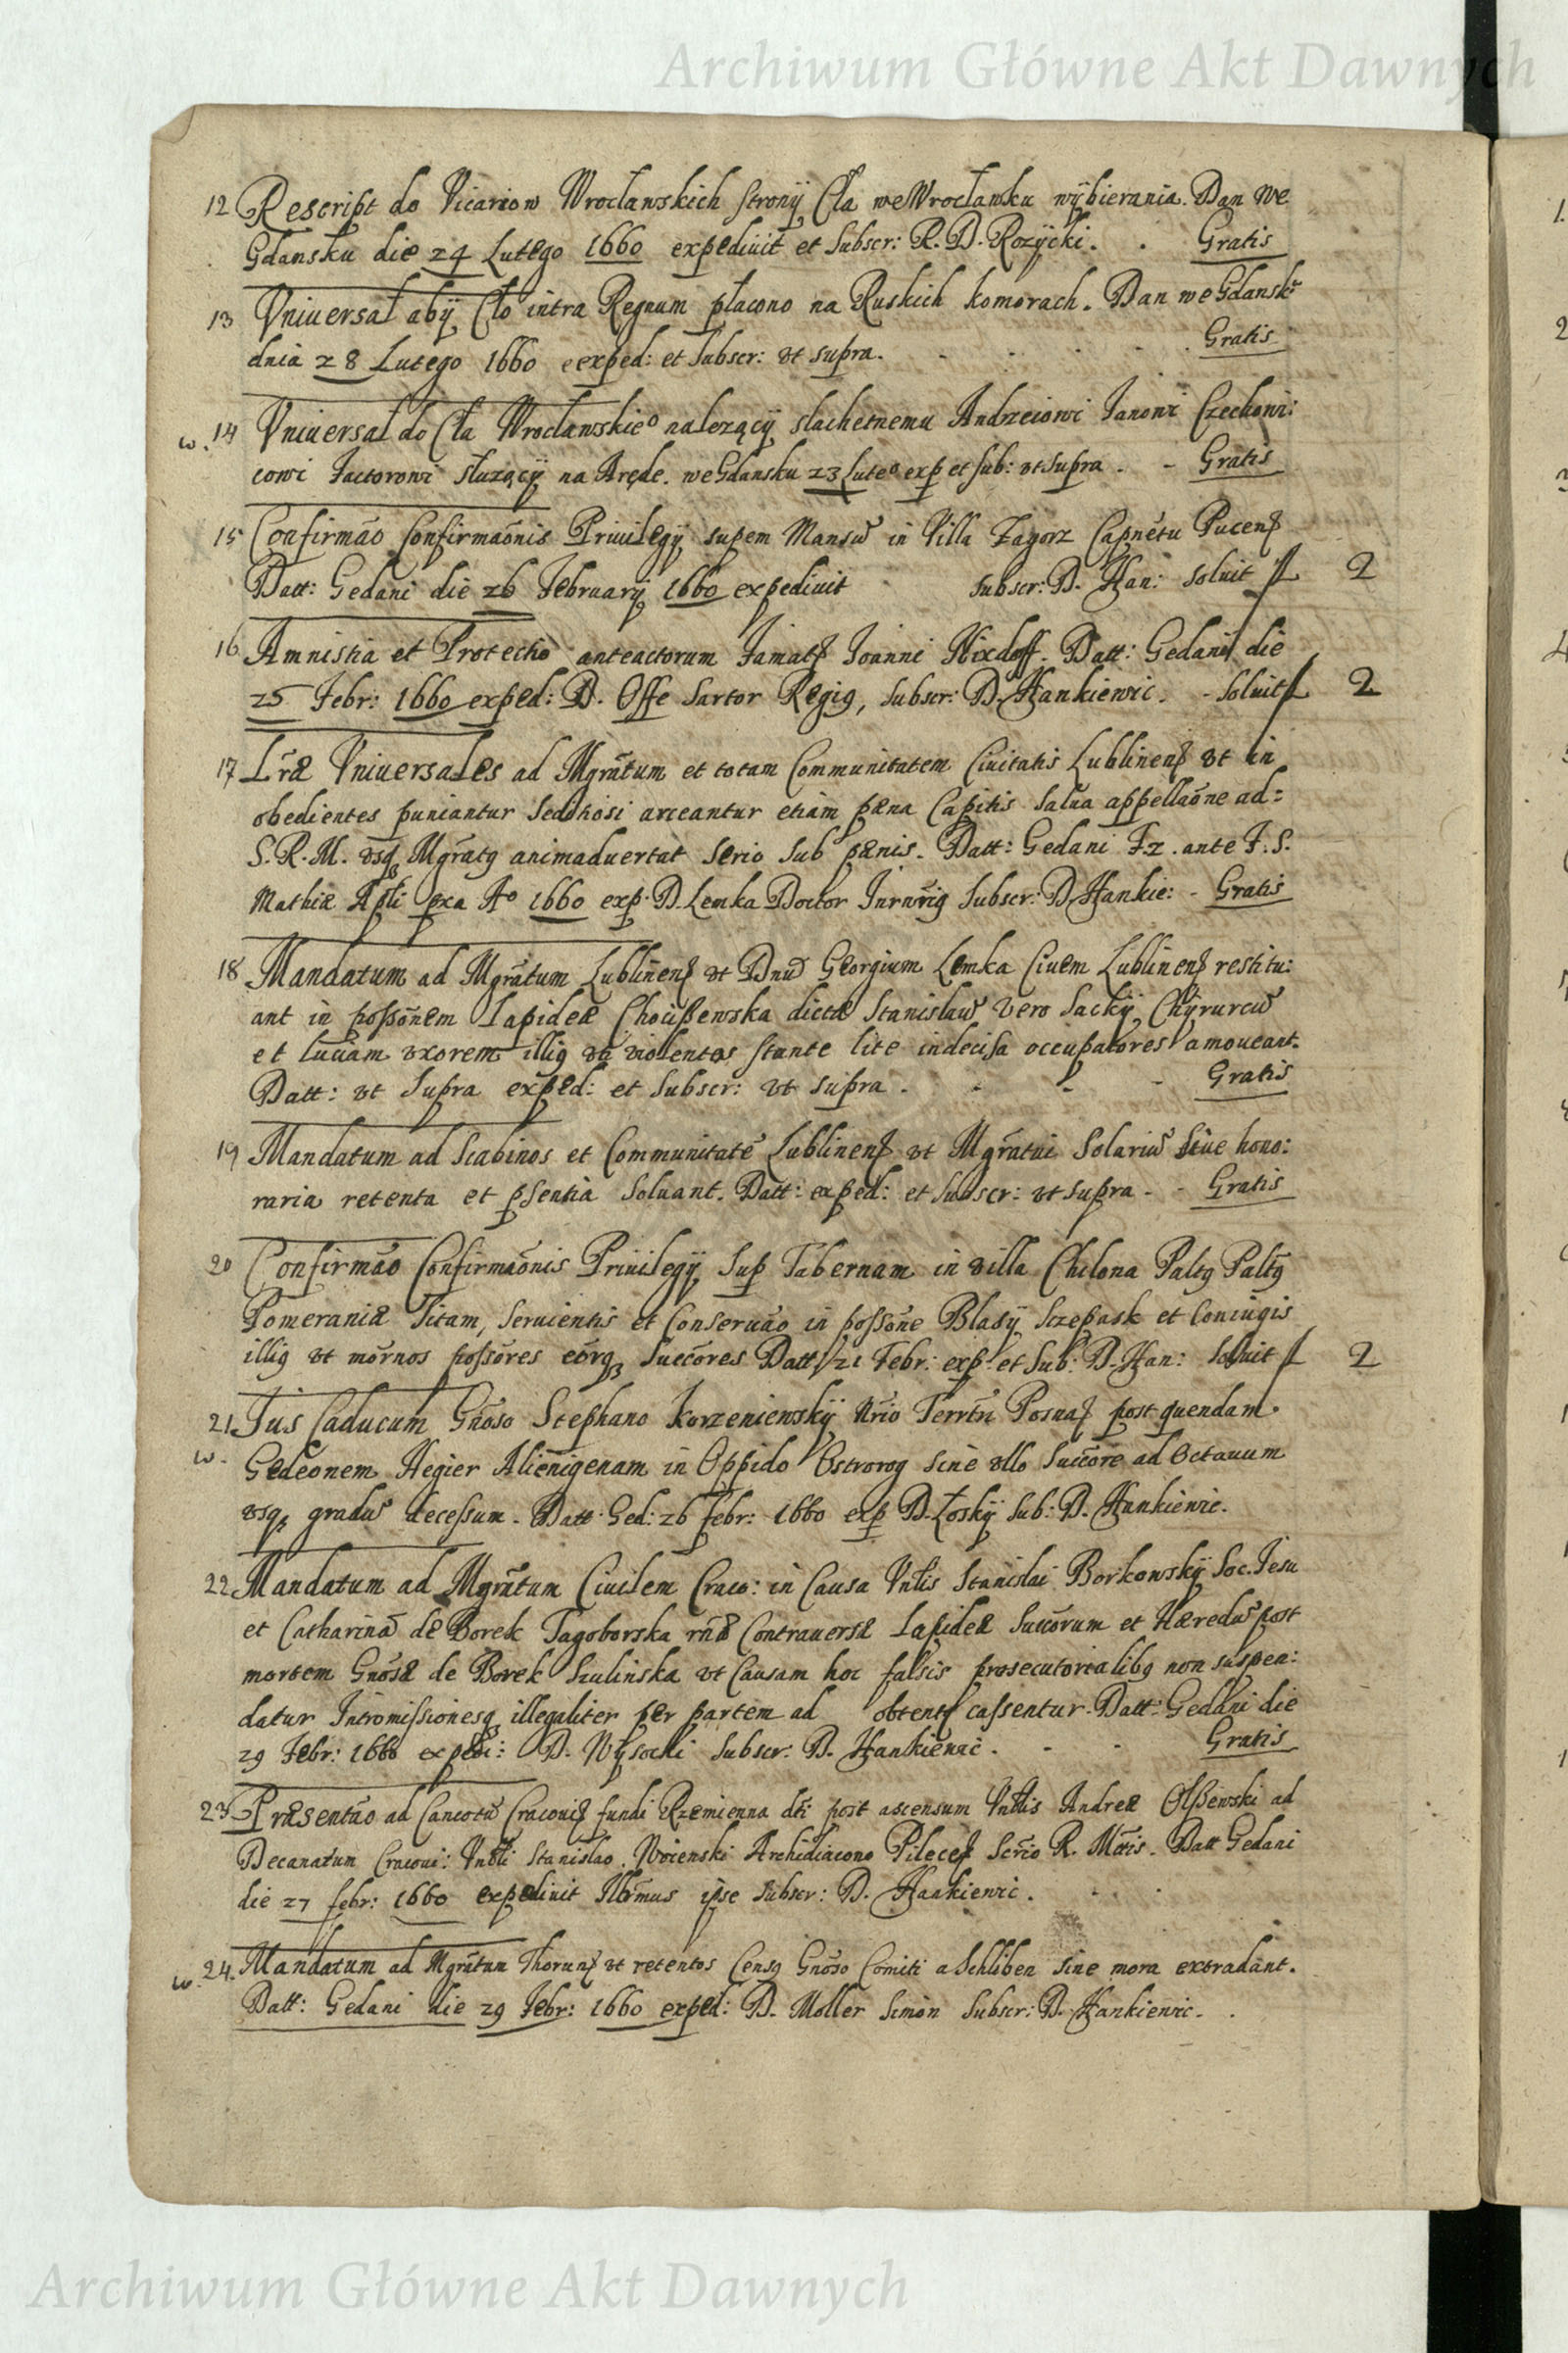 Archiwum Główne Akt Dawnych
12 Rescript do Vicariow Wrocławskich strony Cła we Wrocławku wybierania. Dan We
Gdansku die 24 Lutego 1660 expediuit et Subscr: R. D. Rozycki. Gratis
13 Vniuersał aby Cło intra Regnum płacono na Ruskich komorach. Dan we Gdansku
dnia 28 Lutego 1660 exped: et Subscr: vt supra. Gratis
w. 14 Vniuersał do Cła Wrocławskieo nalezący slachetnemu Andrzeiowi Janowi Czechowi:
cowi Factorowi słuzący na Aręde. we Gdansku 23 Luteo exp et sub: vt supra - - Gratis
15 Confirmao Confirmaonis Priuilegy supem Mansu in Villa Zagorz Capnetu Pucen
Datt: Gedani die 26 February 1660 expediuit subscr: D. Han: soluit f 2
16 Amnistia et Protectio anteactorum Famat Joanni Nixdoff. Datt: Gedani die
25 Febr: 1660 exped: D. Offe Sartor Regig, subscr: D. Hankiewic. - soluit f 2
17 Lræ Vniuersales ad Mgratum et totam Communitatem Ciuitatis Lublinen vt in
obedientes puniantur seditiosi arceantur etiam pæna Capitis salua appellaone ad:
S. R. M. vsq Mgratg animaduertat serio sub pænis. Datt: Gedani F. 2. ante F. S.
Mathiæ Apli exa Ao 1660 exp. D. Lemka Doctor Subscr: D. Hankie: - Gratis
18 Mandatum ad Mgratum Lublinen vt Dnu Georgium Lemka Ciuem Lublinen restitu:
ant in possonem Lapideæ dictæ Stanislau vero Sacky, Chyrurcu
et Luciam vxorem illig vti violentos stante lite indecisa occupatores amoueant.
Datt: vt supra exped: et subscr: vt supra. - - - Gratis
19 Mandatum ad Scabinos et Communitate Lublinen vt Mgratui Solariu siue hono:
raria retenta et psentia soluant. Datt: exped: et subscr: vt supra - - Gratis
20 Confirmao Confirmaonis Priuilegy, sup Tabernam in villa Chilona Paltg Paltg
Pomeraniæ Titam, seruientis et Conseruao in possone Blasy Szepask et Coniugis
illig vt mornos possores eorg succores Datt 21 Febr: exp. et sub: D. Han: soluit f 2
21 Jus Caducum Gnoso Stephano Korzeniewsky Nrio Terrtri Posna post quendam
w. Gedeonem Hegier Alienigenam in Oppido Ostrorog sine vllo succore ad octauum
vsq gradu decessum. Datt: Ged: 26 febr: 1660 exp D. Łosky sub: D. Hankiewic.
22 Mandatum ad Mgratum Ciuilem Craco: in Causa Vnlis Stanislai Borkowsky Soc. Jesu
et Catharina de Borek Tagoborska rnæ Contrauersæ Lapideæ succorum et Hæredu post
mortem Gnosæ de Borek Szulinska vt Causam hoc falsis prosecutorialibg non suspen:
datur Intromissionesq illegaliter per partem ad obtent cassentur. Datt: Gedani die
29 Febr: 1660 expedi: D. Wysocki subscr: D. Hankiewic. - - Gratis
23 Præsentao ad Cancotu Cracoui fundi Rzemienna dti post ascensum Vnlis Andreæ Olszewski ad
Decanatum Cracoui: Vnbli Stanislao Woienski Archidiacono Pilece Scrio R. Mtis. Datt Gedani
die 27 febr: 1660 expediuit Illmus ipse subscr: D. Hankiewic.
w. 24. Mandatum ad Mgratum Thorun vt retentos Censg Gnoso Comiti a Schliben sine mora extradant.
Datt: Gedani die 29 Febr: 1660 exped: D. Moller Simon subscr: D. Hankiewic.
Archiwum Główne Akt Dawnych